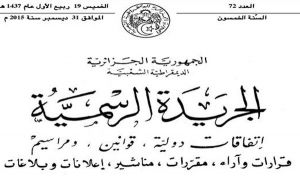 الخميس 19 ربيع الأول عام 1437 هـ
الموافق 31 ديسمبر سنة 2015 م
العدد 72
السنة الخمسون
الجمهورية الجزائرية
الديمقراطية الشعبية
الجريدة الرسمية
إتفاقات دولية، قوانين، ومراسيم
قرارات وآراء، مقررات، مناشير، إعلانات وبلاغات